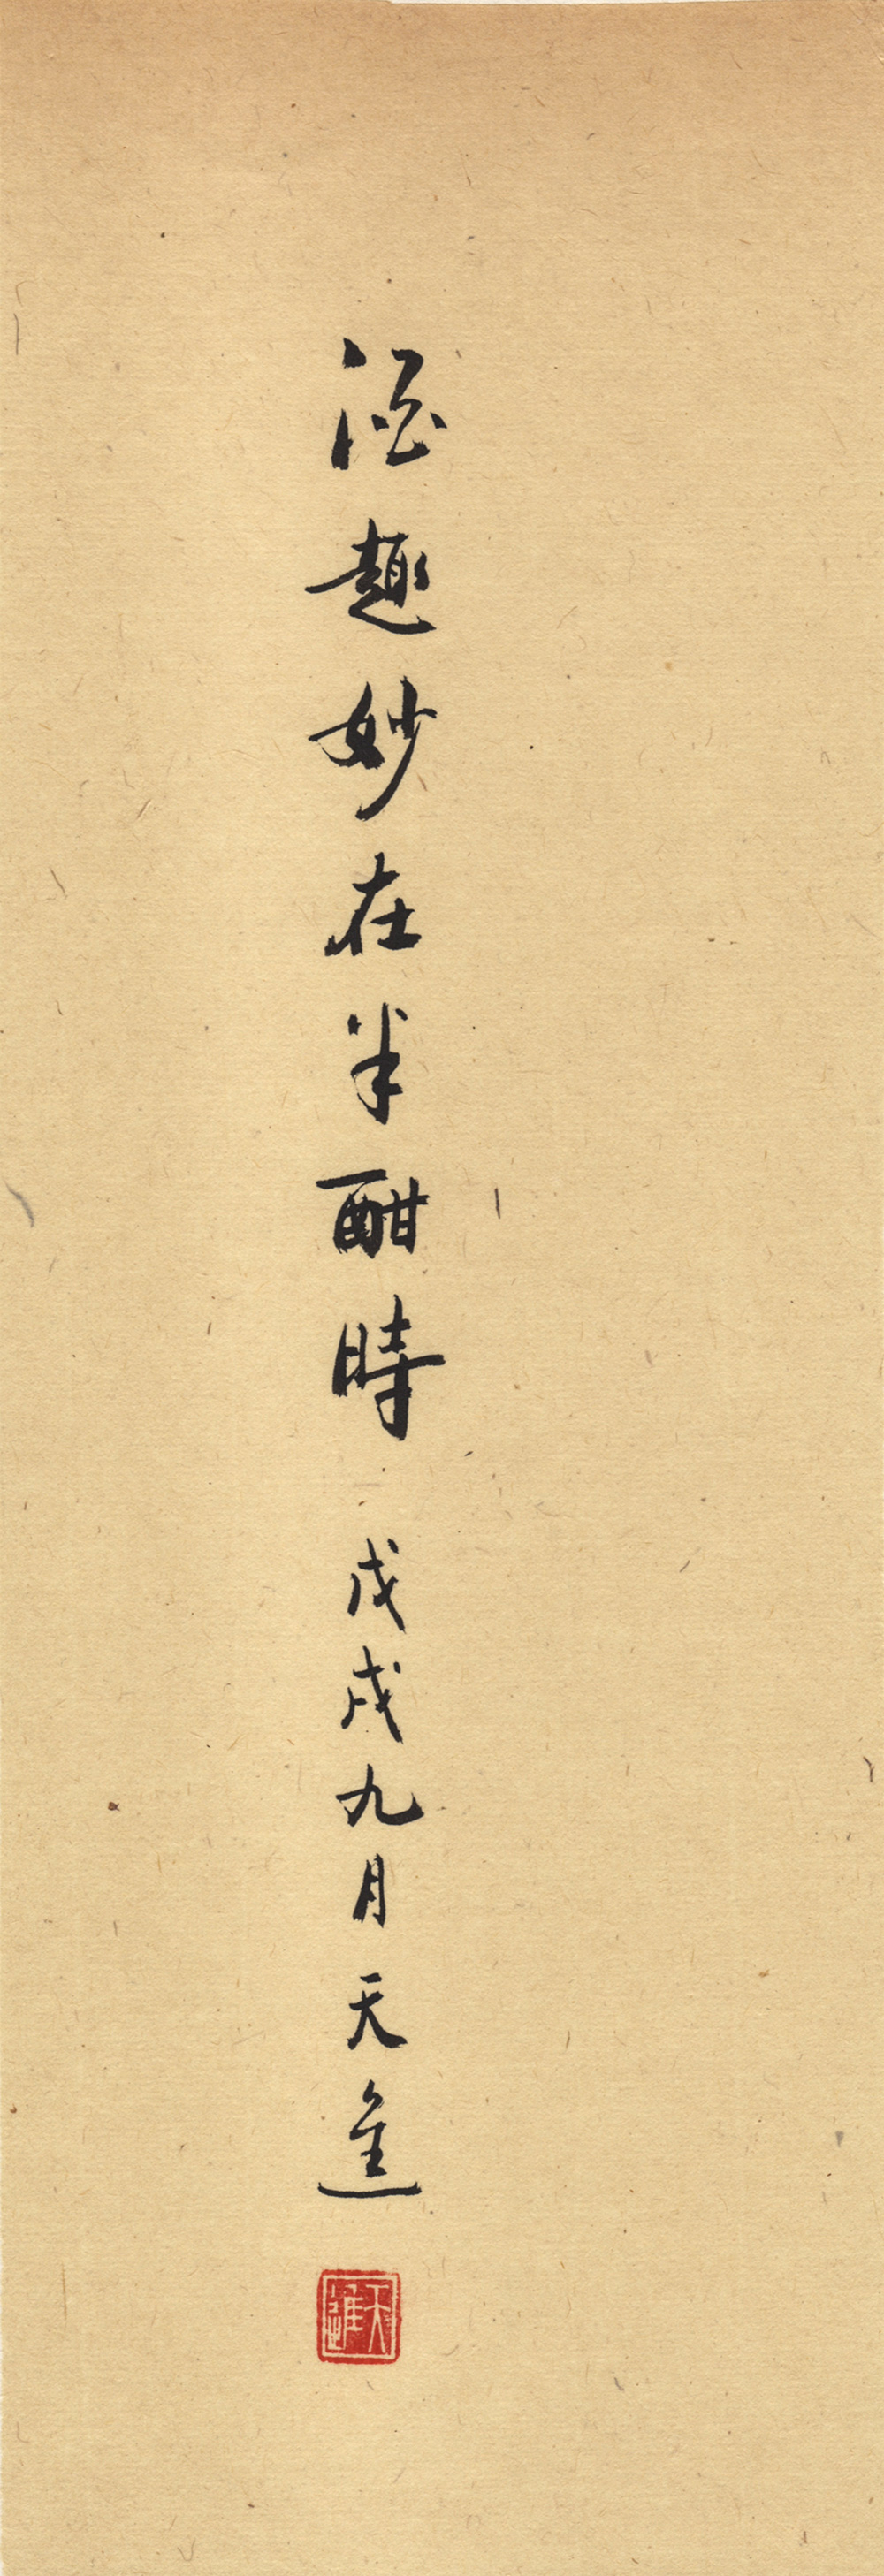 酒趣妙在半酣時 戊戌九月 天進
天進